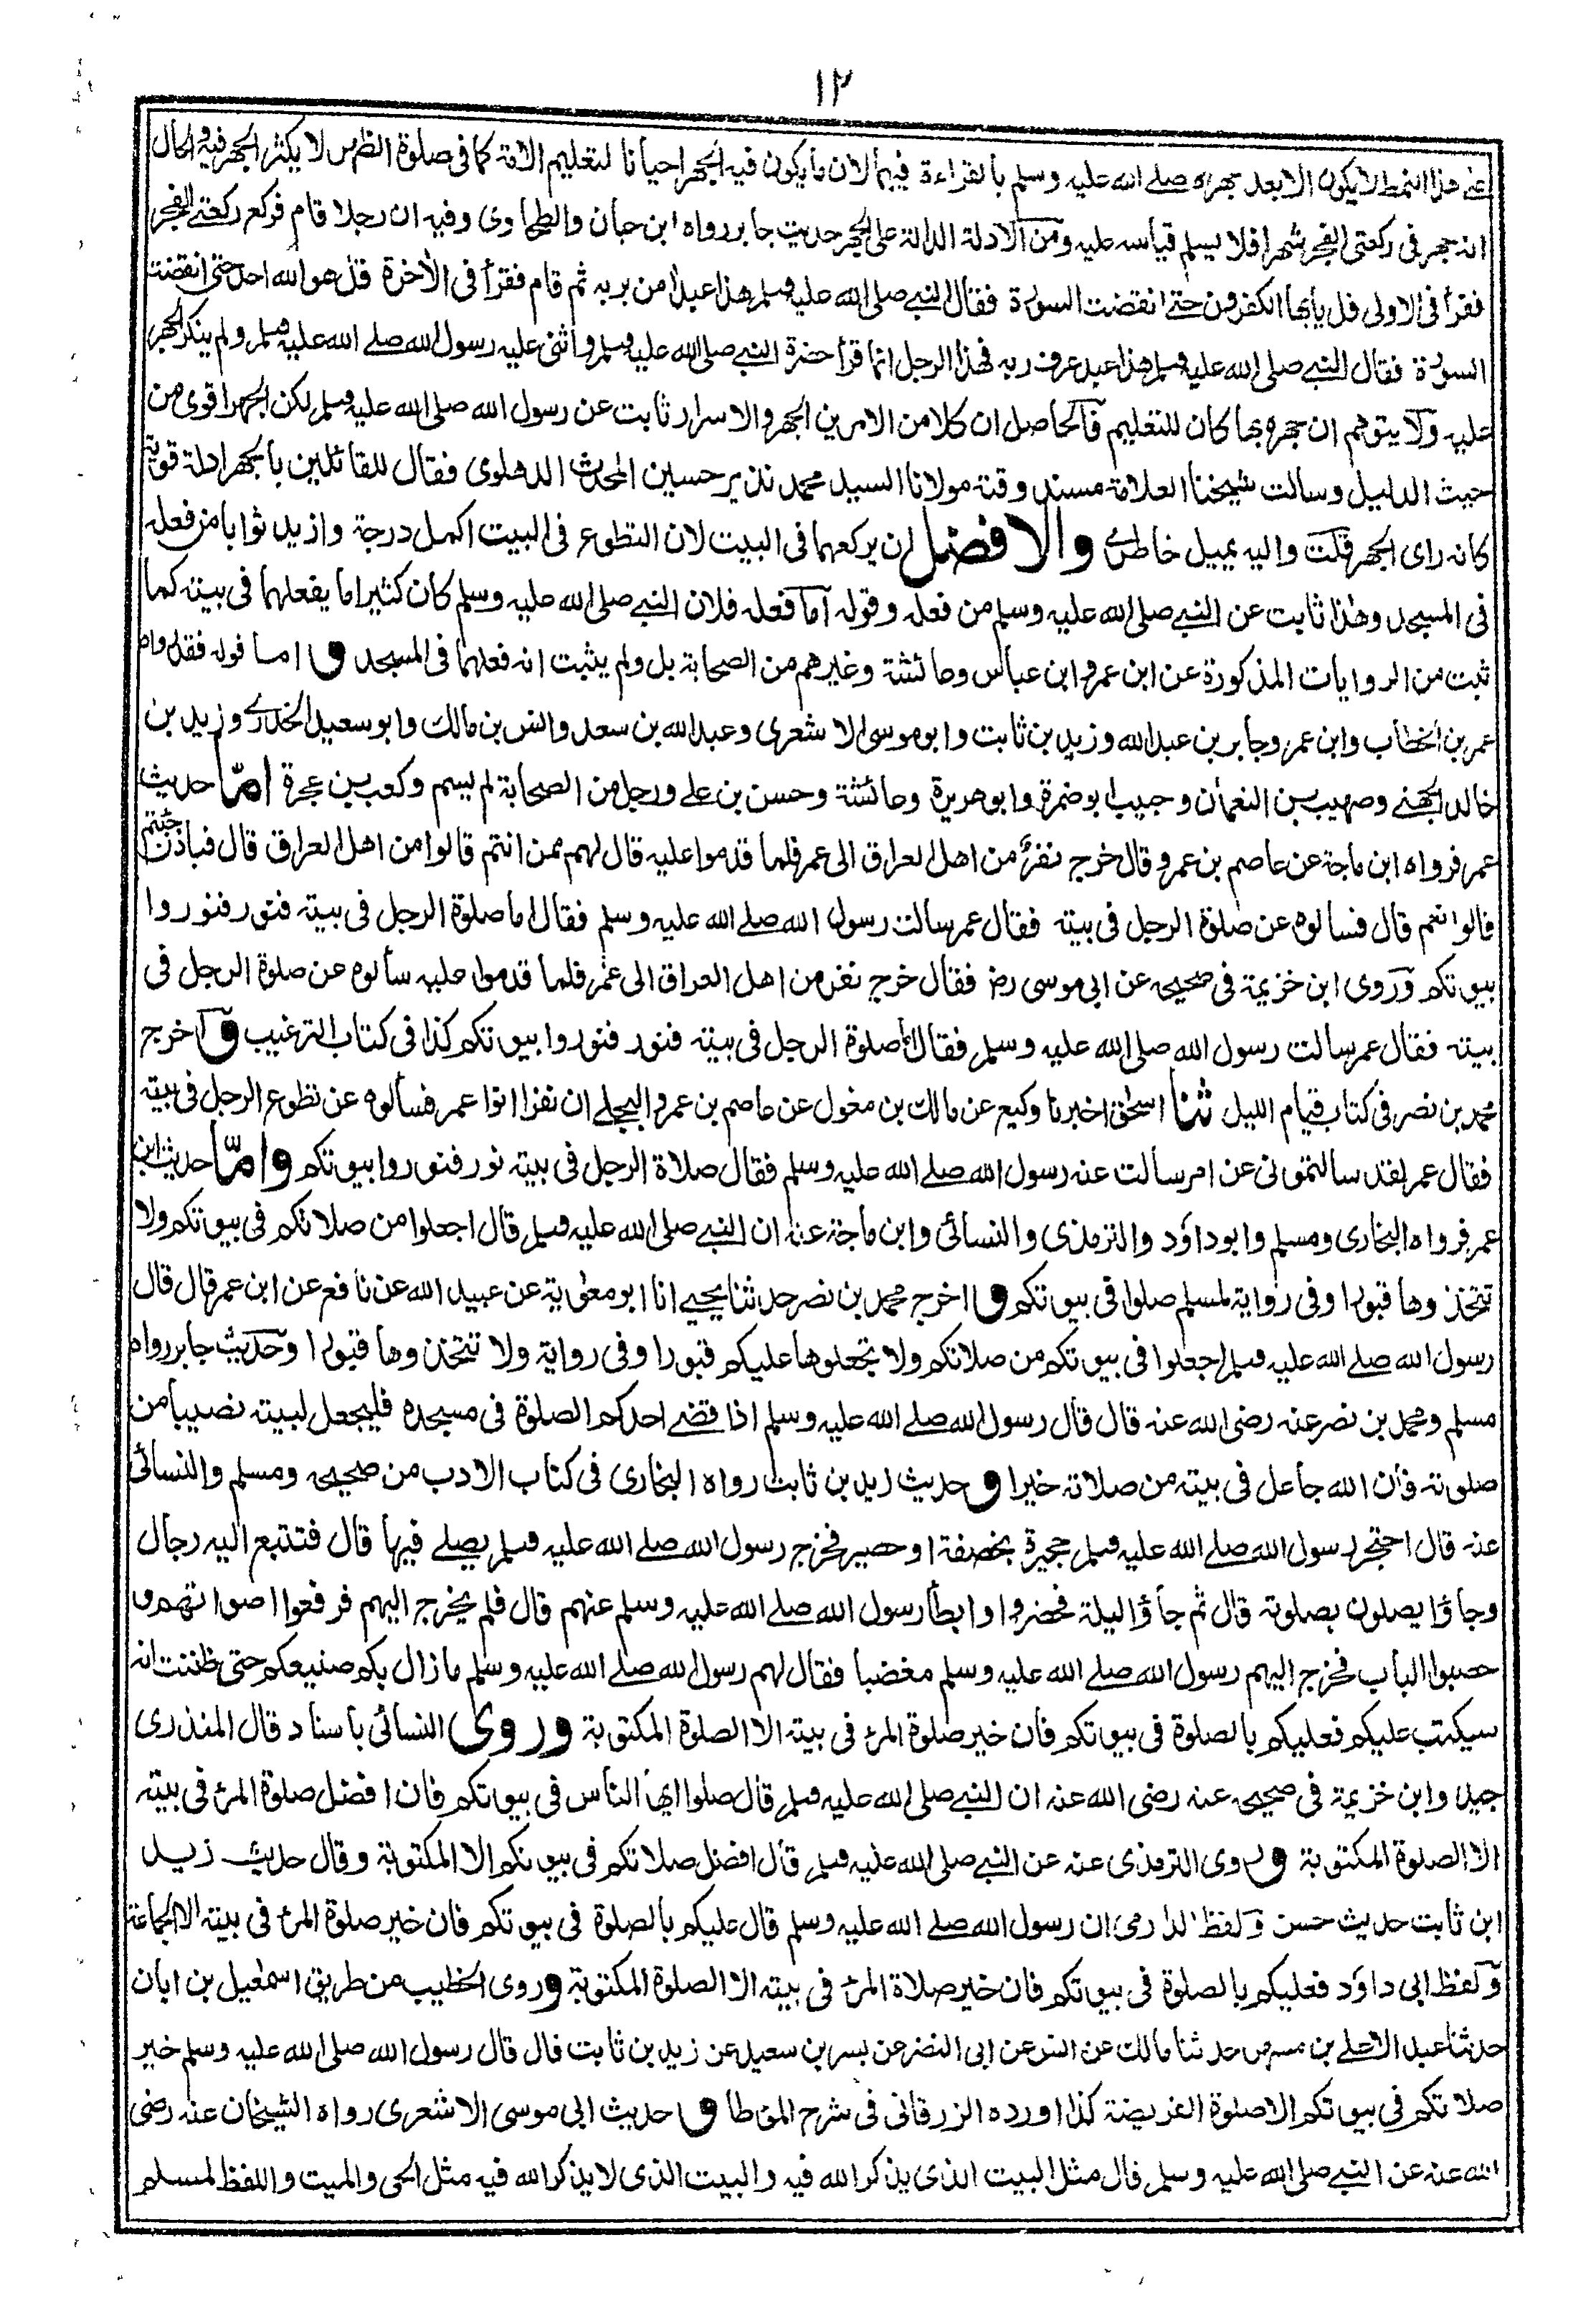 ١٢
على هذا النمط لا يكون الا بعد جهره صلے الله عليه وسلم بالقراءة فيهما لان ما يكون فيه الجهر احيانا لتعليم الامة كما فى صلوة الظهر لا يكثر الجهر فيه والحال
انه جهر فى ركعتى الفجر شهرا فلا يسلم قياسه عليه ومن الادلة الدالة على الجهر حديث جابر رواه ابن حبان والطحاوى وفيه ان رجلا قام فركع ركعتى الفجر
فقرأ فى الاولى قل يأيها الكفرون حتى انقضت السورة فقال النبے صلى الله عليه وسلم هذا عبد امن بربه ثم قام فقرأ فى الأخرة قل هو الله احد حتى انقضت
السورة فقال النبے صلى الله عليه وسلم هذا عبد عرف ربه فهذا الرجل انما قرأ حضرة النبے صلى الله عليه وسلم واثنى عليه رسول الله صلے الله عليه وسلم ولم ينكر الجهر
عليه ولا يتوهم ان جهره بها كان للتعليم فالحاصل ان كلا من الامرين الجهر والاسرار ثابت عن رسول الله صلى الله عليه وسلم لكن الجهر اقوى من
حيث الدليل وسالت شيخنا العلامة مسند وقته مولانا السيد محمد نذير حسين المحدث الدهلوى فقال للقائلين بالجهر ادلة قوية
كانه راى الجهر قلت واليه يميل خاطرى والافضل ان يركعهما فى البيت لان التطوع فى البيت اكمل درجة وازيد ثوابا من فعله
فى المسجد وهذا ثابت عن النبے صلى الله عليه وسلم من فعله وقوله اما فعله فلان النبے صلى الله عليه وسلم كان كثيرا ما يفعلهما فى بيته كما
ثبت من الروايات المذكورة عن ابن عمر وابن عباس وعائشة وغيرهم من الصحابة بل ولم يثبت انه فعلهما فى المسجد و اما قوله فقد رواه
عمر بن الخطاب وابن عمر وجابر بن عبد الله وزيد بن ثابت وابو موسى الاشعرى وعبد الله بن سعد وانس بن مالك وابو سعيد الخدرے وزيد بن
خالد الجهنے وصهيب بن النعمان وحبيب ابو ضمرة وابو هريرة وعائشة وحسن بن علے ورجل من الصحابة لم يسم وكعب بن عجرة امّا حديث
عمر فرواه ابن ماجة عن عاصم بن عمرو قال خرج نفر من اهل العراق الى عمر فلما قدموا عليه قال لهم ممن انتم قالوا من اهل العراق قال فباذن جئتم
قالوا نعم قال فسألوه عن صلوة الرجل فى بيته فقال عمر سالت رسول الله صلے الله عليه وسلم فقال اما صلوة الرجل فى بيته فنور فنوروا
بيوتكم وروى ابن خزيمة فى صحيحه عن ابى موسى رضـ فقال خرج نفر من اهل العراق الى عمر فلما قدموا عليه سألوه عن صلوة الرجل فى
بيته فقال عمر سالت رسول الله صلى الله عليه وسلم فقال اما صلوة الرجل فى بيته فنور فنوروا بيوتكم كذا فى كتاب الترغيب و اخرج
محمد بن نصر فى كتاب قيام الليل ثنا اسحق اخبرنا وكيع عن مالك بن مغول عن عاصم بن عمرو البجلے ان نفرا اتوا عمر فسألوه عن تطوع الرجل فى بيته
فقال عمر لقد سالتمونى عن امر سالت عنه رسول الله صلے الله عليه وسلم فقال صلاة الرجل فى بيته نور فنوروا بيوتكم وامّا حديث ابن
عمر فرواه البخارى ومسلم وابو داؤد والترمذى والنسائى وابن ماجة عنه ان النبے صلى الله عليه وسلم قال اجعلوا من صلاتكم فى بيوتكم ولا
تتخذوها قبورا وفى رواية لمسلم صلوا فى بيوتكم و اخرج محمد بن نصر حدثنا يحيے انا ابو معوية عن عبيد الله عن نافع عن ابن عمر قال قال
رسول الله صلے الله عليه وسلم اجعلوا فى بيوتكم من صلاتكم ولا تجعلوها عليكم قبورا وفى رواية ولا تتخذوها قبورا وحديث جابر رواه
مسلم ومحمد بن نصر عنه رضى الله عنه قال قال رسول الله صلے الله عليه وسلم اذا قضے احدكم الصلوة فى مسجده فليجعل لبيته نصيبا من
صلوته فان الله جاعل فى بيته من صلاته خيرا و حديث زيد بن ثابت رواه البخارى فى كتاب الادب من صحيحه ومسلم والنسائى
عنه قال احتجر رسول الله صلے الله عليه وسلم حجيرة بخصفة او حصير فخرج رسول الله صلے الله عليه وسلم يصلے فيها قال فتتبع اليه رجال
وجاؤا يصلون بصلوته قال ثم جاؤا ليلة فحضروا وابطأ رسول الله صلے الله عليه وسلم عنهم قال فلم يخرج اليهم فرفعوا اصواتهم و
حصبوا الباب فخرج اليهم رسول الله صلے الله عليه وسلم مغضبا فقال لهم رسول الله صلے الله عليه وسلم ما زال بكم صنيعكم حتى ظننت انه
سيكتب عليكم فعليكم بالصلوة فى بيوتكم فان خير صلوة المرء فى بيته الا الصلوة المكتوبة وروى النسائى باسناد قال المنذرى
جيد وابن خزيمة فى صحيحه عنه رضى الله عنه ان النبے صلى الله عليه وسلم قال صلوا ايها الناس فى بيوتكم فان افضل صلوة المرء فى بيته
الا الصلوة المكتوبة وروى الترمذى عنه عن النبے صلى الله عليه وسلم قال افضل صلاتكم فى بيوتكم الا المكتوبة وقال حديث زيد
ابن ثابت حديث حسن ولفظ الدارمى ان رسول الله صلے الله عليه وسلم قال عليكم بالصلوة فى بيوتكم فان خير صلوة المرء فى بيته الا الجماعة
ولفظ ابى داؤد فعليكم بالصلوة فى بيوتكم فان خير صلاة المرء فى بيته الا الصلوة المكتوبة وروى الخطيب من طريق اسمعيل بن ابان
حدثنا عبد الاعلے بن مسهر حدثنا مالك عن انس عن ابى النضر عن بسر بن سعيد عن زيد بن ثابت قال قال رسول الله صلى الله عليه وسلم خير
صلاتكم فى بيوتكم الا صلوة الفريضة كذا اورده الزرقانى فى شرح المؤطا و حديث ابى موسى الاشعرى رواه الشيخان عنه رضى
الله عنه عن النبے صلى الله عليه وسلم قال مثل البيت الذى يذكر الله فيه والبيت الذى لا يذكر الله فيه مثل الحى والميت واللفظ لمسلم